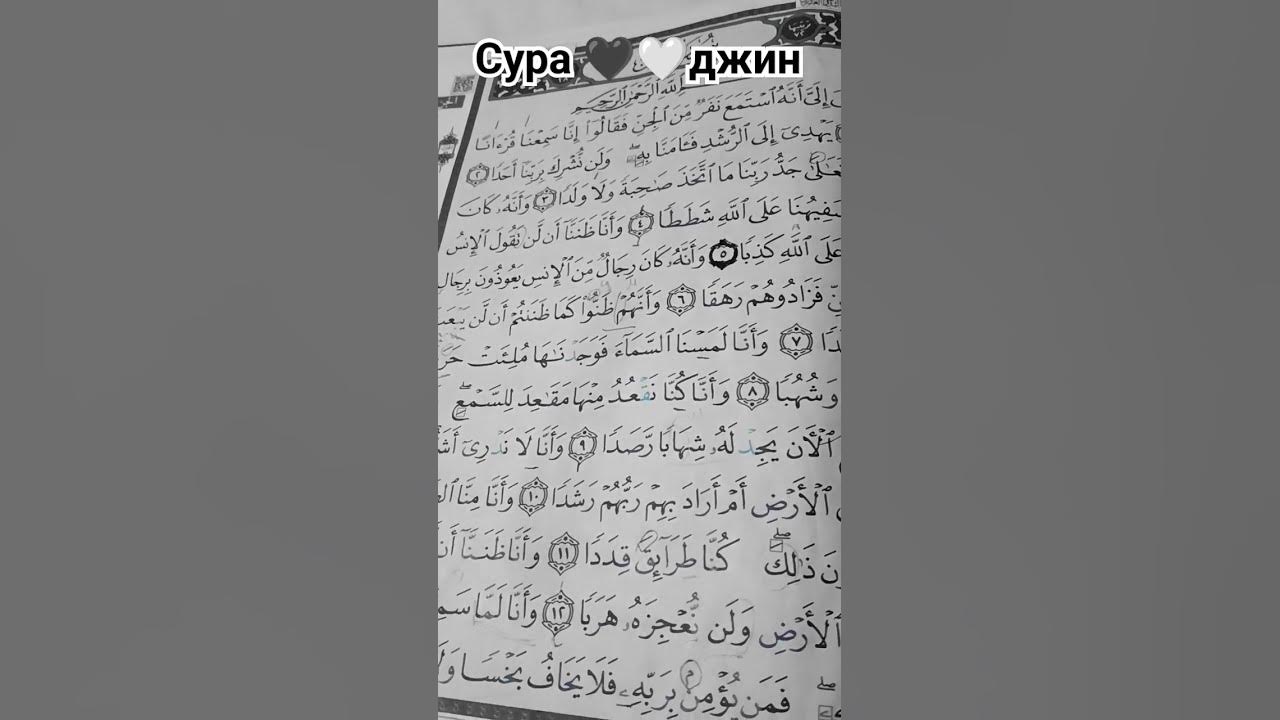 Сура 🖤🤍джин
ٱللَّهِ ٱلرَّحْمَٰنِ ٱلرَّحِيمِ
إِلَىَّ أَنَّهُ ٱسْتَمَعَ نَفَرٌ مِّنَ ٱلْجِنِّ فَقَالُوٓا۟ إِنَّا سَمِعْنَا قُرْءَانًا
يَهْدِىٓ إِلَى ٱلرُّشْدِ فَـَٔامَنَّا بِهِۦ ۖ وَلَن نُّشْرِكَ بِرَبِّنَآ أَحَدًا ٢
جَدُّ رَبِّنَا مَا ٱتَّخَذَ صَٰحِبَةً وَلَا وَلَدًا ٣ وَأَنَّهُۥ كَانَ
سَفِيهُنَا عَلَى ٱللَّهِ شَطَطًا ٤ وَأَنَّا ظَنَنَّآ أَن لَّن تَقُولَ ٱلْإِنسُ
عَلَى ٱللَّهِ كَذِبًا ٥ وَأَنَّهُۥ كَانَ رِجَالٌ مِّنَ ٱلْإِنسِ يَعُوذُونَ بِرِجَالٍ
فَزَادُوهُمْ رَهَقًا ٦ وَأَنَّهُمْ ظَنُّوا۟ كَمَا ظَنَنتُمْ أَن لَّن
٧ وَأَنَّا لَمَسْنَا ٱلسَّمَآءَ فَوَجَدْنَٰهَا مُلِئَتْ
وَشُهُبًا ٨ وَأَنَّا كُنَّا نَقْعُدُ مِنْهَا مَقَٰعِدَ لِلسَّمْعِ ۖ
ٱلْـَٔانَ يَجِدْ لَهُۥ شِهَابًا رَّصَدًا ٩ وَأَنَّا لَا نَدْرِىٓ
ٱلْأَرْضِ أَمْ أَرَادَ بِهِمْ رَبُّهُمْ رَشَدًا ١٠ وَأَنَّا مِنَّا
ذَٰلِكَ ۖ كُنَّا طَرَآئِقَ قِدَدًا ١١ وَأَنَّا ظَنَنَّآ أَن
ٱلْأَرْضِ وَلَن نُّعْجِزَهُۥ هَرَبًا ١٢ وَأَنَّا لَمَّا
فَمَن يُؤْمِنۢ بِرَبِّهِۦ فَلَا يَخَافُ بَخْسًا